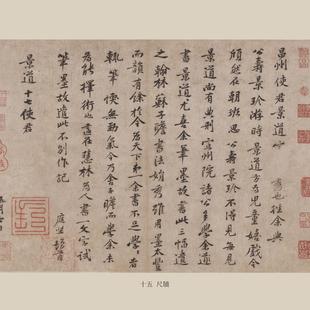 昌州使君景道宗秀也往余與
公壽景珍游時景道方為兒童嬉戲今
頎然在朝班思公壽景珍不得見每見
景道尚有典刑宣州院諸公多學余書
景道尤喜余筆墨故書此三幅遺
之翰林蘇子瞻書法娟秀雖用墨太豐
而韻有餘於今為天下第一余書不足學學者
輒筆愞無勁氣今乃舍子瞻而學余未
為能擇術也適在慧林為人書一文字試
筆墨故遺此不別作記
庭堅頓首
景道十七使君
五月七日
十五 尺牘